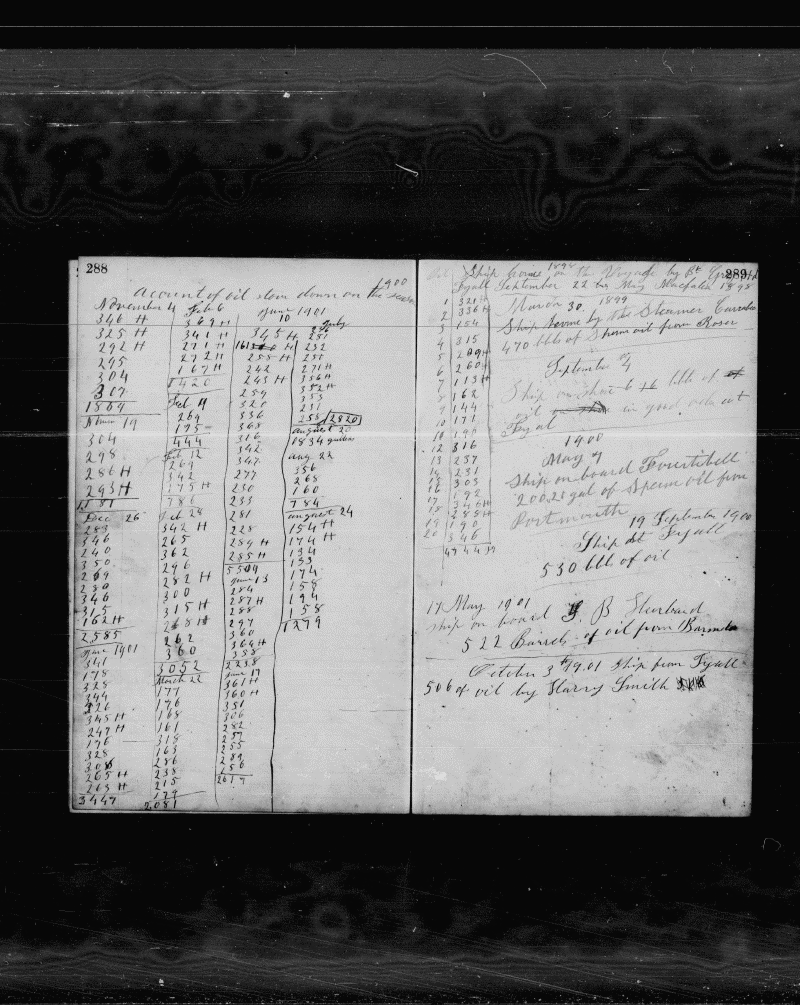 288
1900
Account of oil stow down on the
November 4
346 H
325 H
292 H
295
304
307
1869
Nover 19
304
298
286 H
293 H
1181
Dec 26
283
346
240
350
269
280
346
315
162 H
2585
June 1901
341
178
328
344
326
345 H
249 H
196
328
308
265 H
263 H
3447
Feb 6
369 H
341 H
271 H
272 H
167 H
1420
Feb 11
269
175
444
Feb 12
269
342
175 H
786
Feb 28
342 H
265
362
296
282 H
300
315 H
268 H
262
360
3052
March 22
177
176
168
161
318
163
286
238
215
179
2081
June 1901
10
345 H
258 H
242
243 H
259
320
336
368
316
342
347
277
230
233
281
228
289 H
285 H
5509
June 13
284
287 H
288
297
360
364 H
358
2238
June 17
361 H
360 H
351
306
282
257
255
289
156
2617
July
286
281
232
251
271 H
356 H
352 H
353
231
258 2820
august 20
1834 gallons
aug 22
356
268
160
784
august 24
154 H
174 H
134
153
174
158
194
158
1299
289
Ship home on the Voyage by Bk
1898
Fyall September 22 by May Macfarlen 1898
1 321 H
2 336 H
3 154
4 315
5 209 H
6 260 H
7 113 H
8 162
9 144
10 171
10 190
12 316
13 237
14 231
15 303
16 192
17 346 H
18 258 H
19 190
20 346
March 30 1899
Ship home by the Steamer
470 bbls of Sperm oil from Rosen
September
Ship on bbls of
oil in good order at
Fyal
1900
May 9
Ship on board
200,20 gal of Sperm oil from
Portmouth
19 September 1900
Ship at Fyall
530 bbls of oil
17 May 1901
ship on board J B Hurbard
522 Barrels of oil from Barmuda
October 3th 19.01 Ship from Fyall
506 of oil by Harry Smith